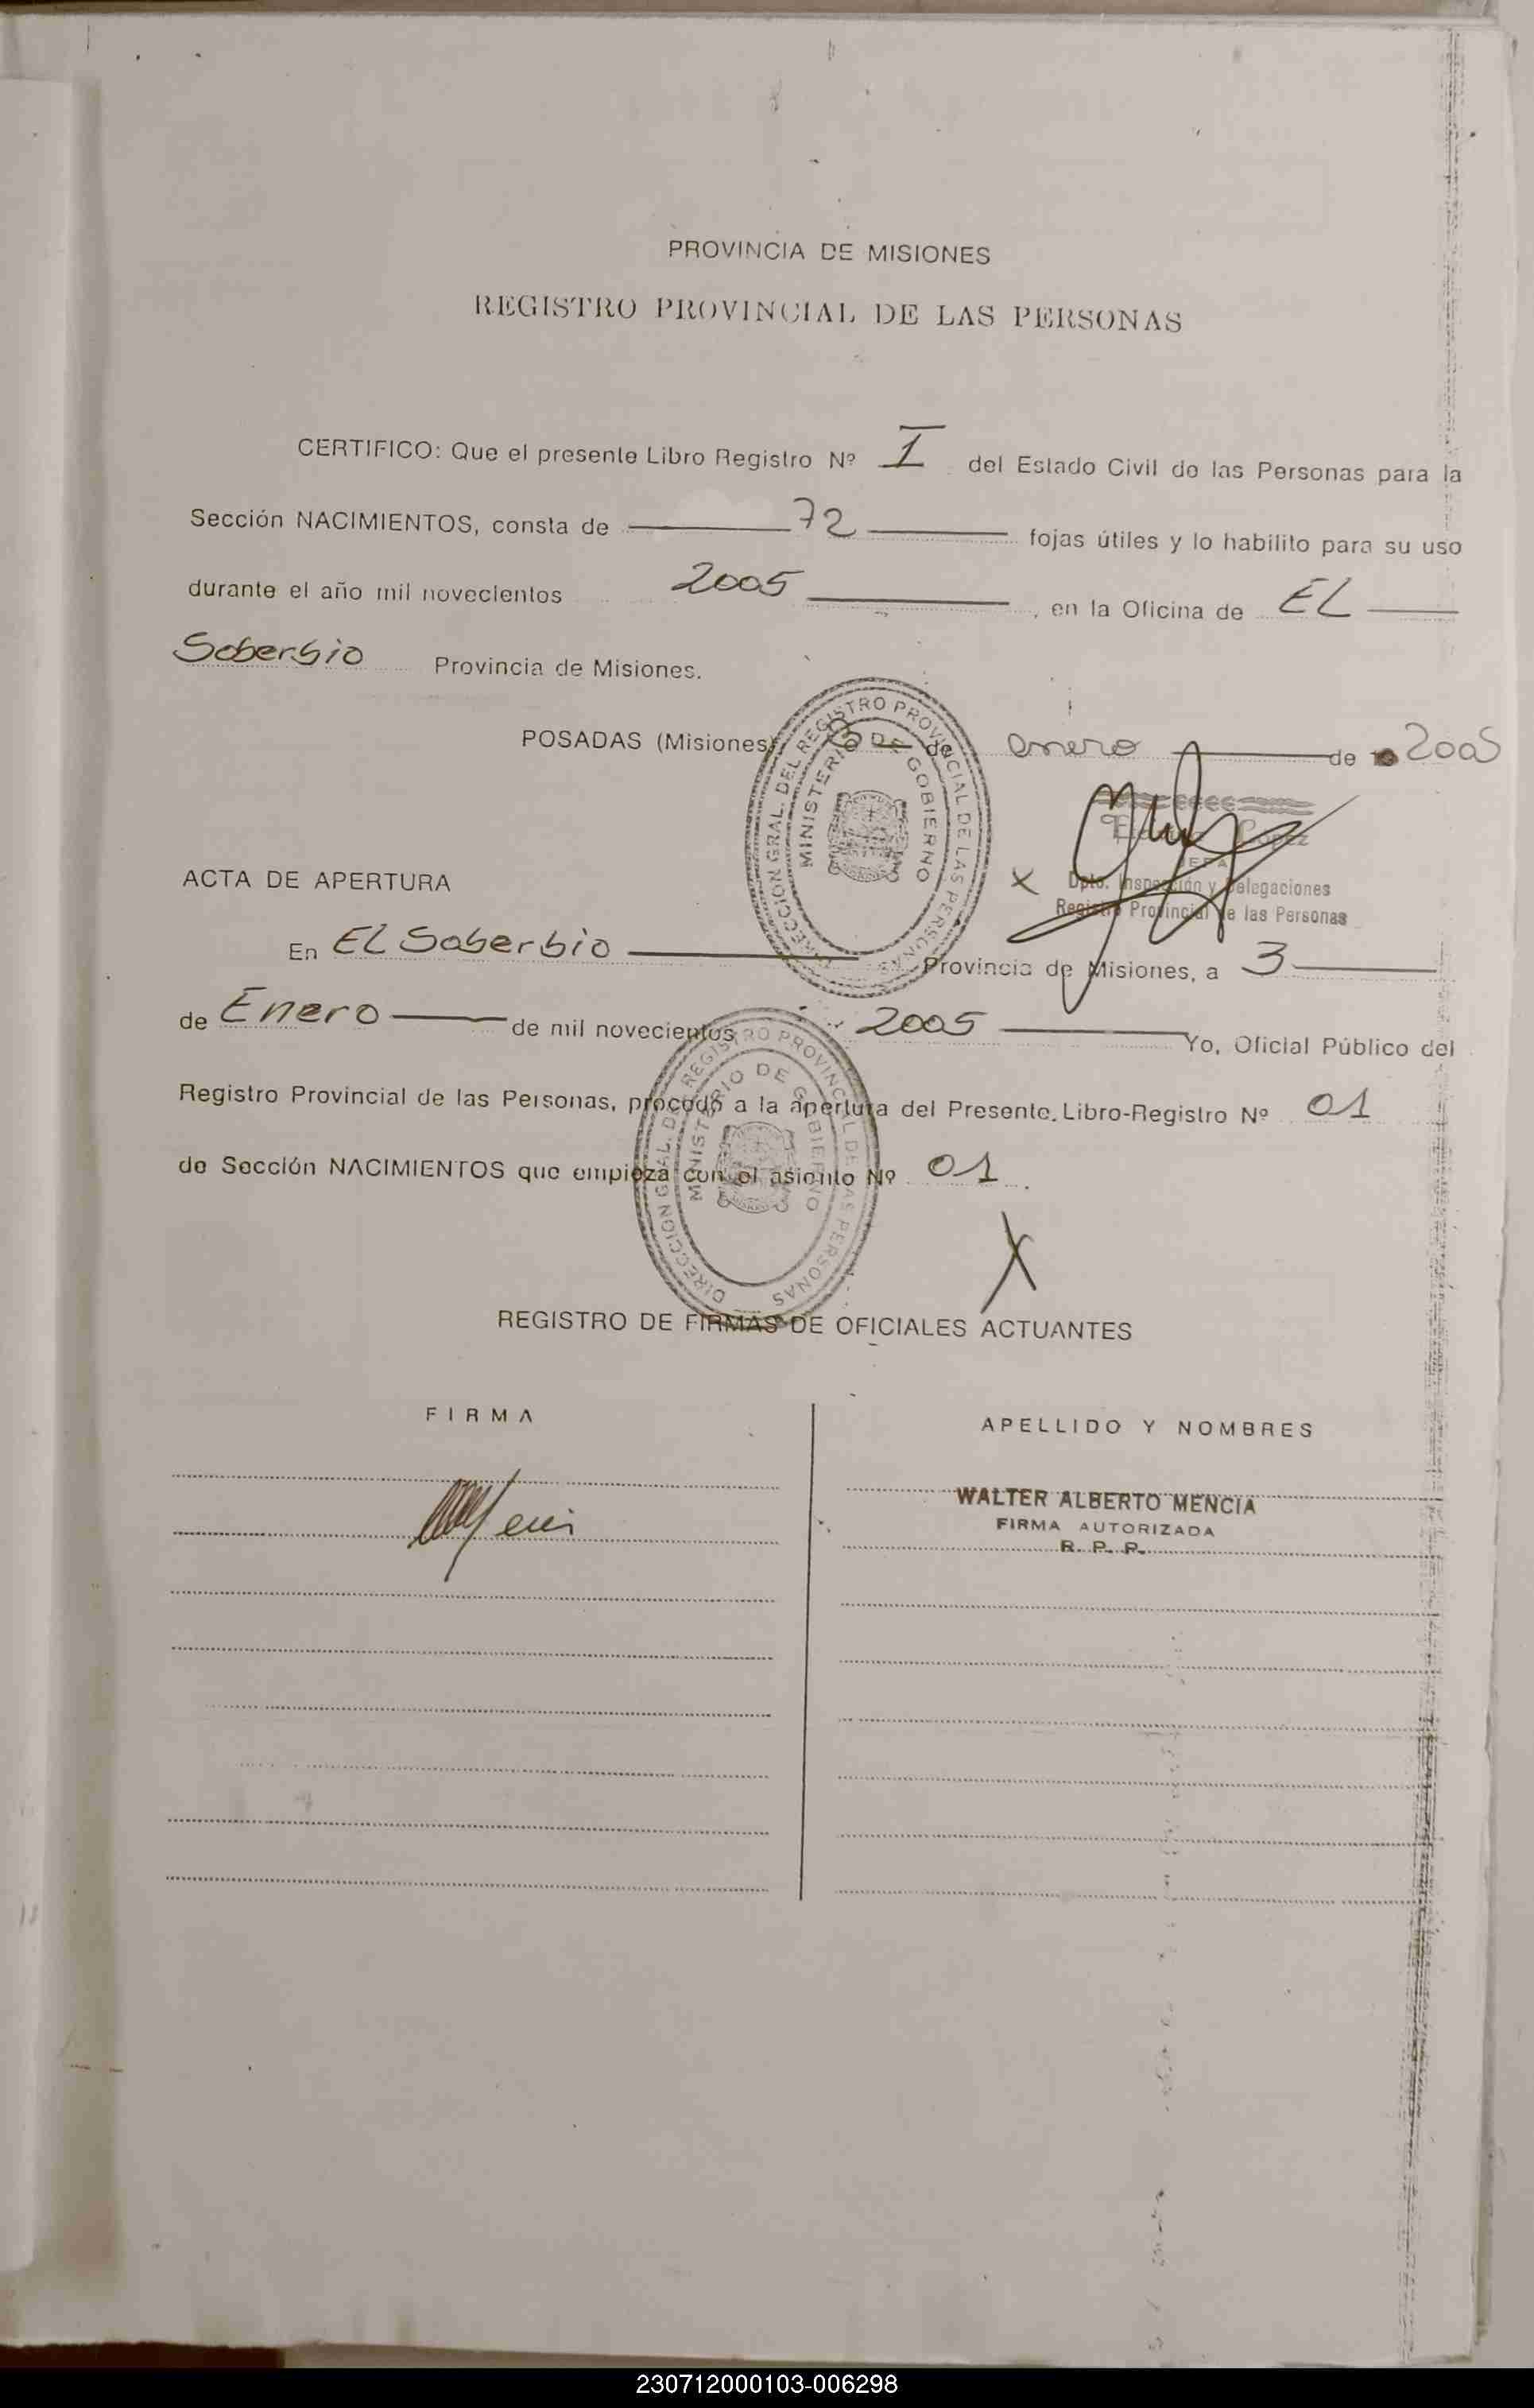 PROVINCIA DE MISIONES
REGISTRO PROVINCIAL DE LAS PERSONAS
CERTIFICO: Que el presente Libro Registro Nº I del Estado Civil de las Personas para la
Sección NACIMIENTOS, consta de 72 fojas útiles y lo habilito para su uso
durante el año mil novecientos 2005, en la Oficina de EL
Soberbio Provincia de Misiones.
POSADAS (Misiones) 3 de enero de 2005
DIRECCION GRAL. DEL REGISTRO PROVINCIAL DE LAS PERSONAS
MINISTERIO DE GOBIERNO
López
JEFA
Dpto. Inspección y Delegaciones
Registro Provincial de las Personas
ACTA DE APERTURA
En EL Soberbio Provincia de Misiones, a 3
de Enero de mil novecientos 2005 Yo, Oficial Público del
Registro Provincial de las Personas, procedo a la apertura del Presente Libro-Registro Nº 01
de Sección NACIMIENTOS que empieza con el asiento Nº 01
DIRECCION GRAL. DEL REGISTRO PROVINCIAL DE LAS PERSONAS
MINISTERIO DE GOBIERNO
REGISTRO DE FIRMAS DE OFICIALES ACTUANTES
FIRMA
APELLIDO Y NOMBRES
WALTER ALBERTO MENCIA
FIRMA AUTORIZADA
R. P. P.
230712000103-006298